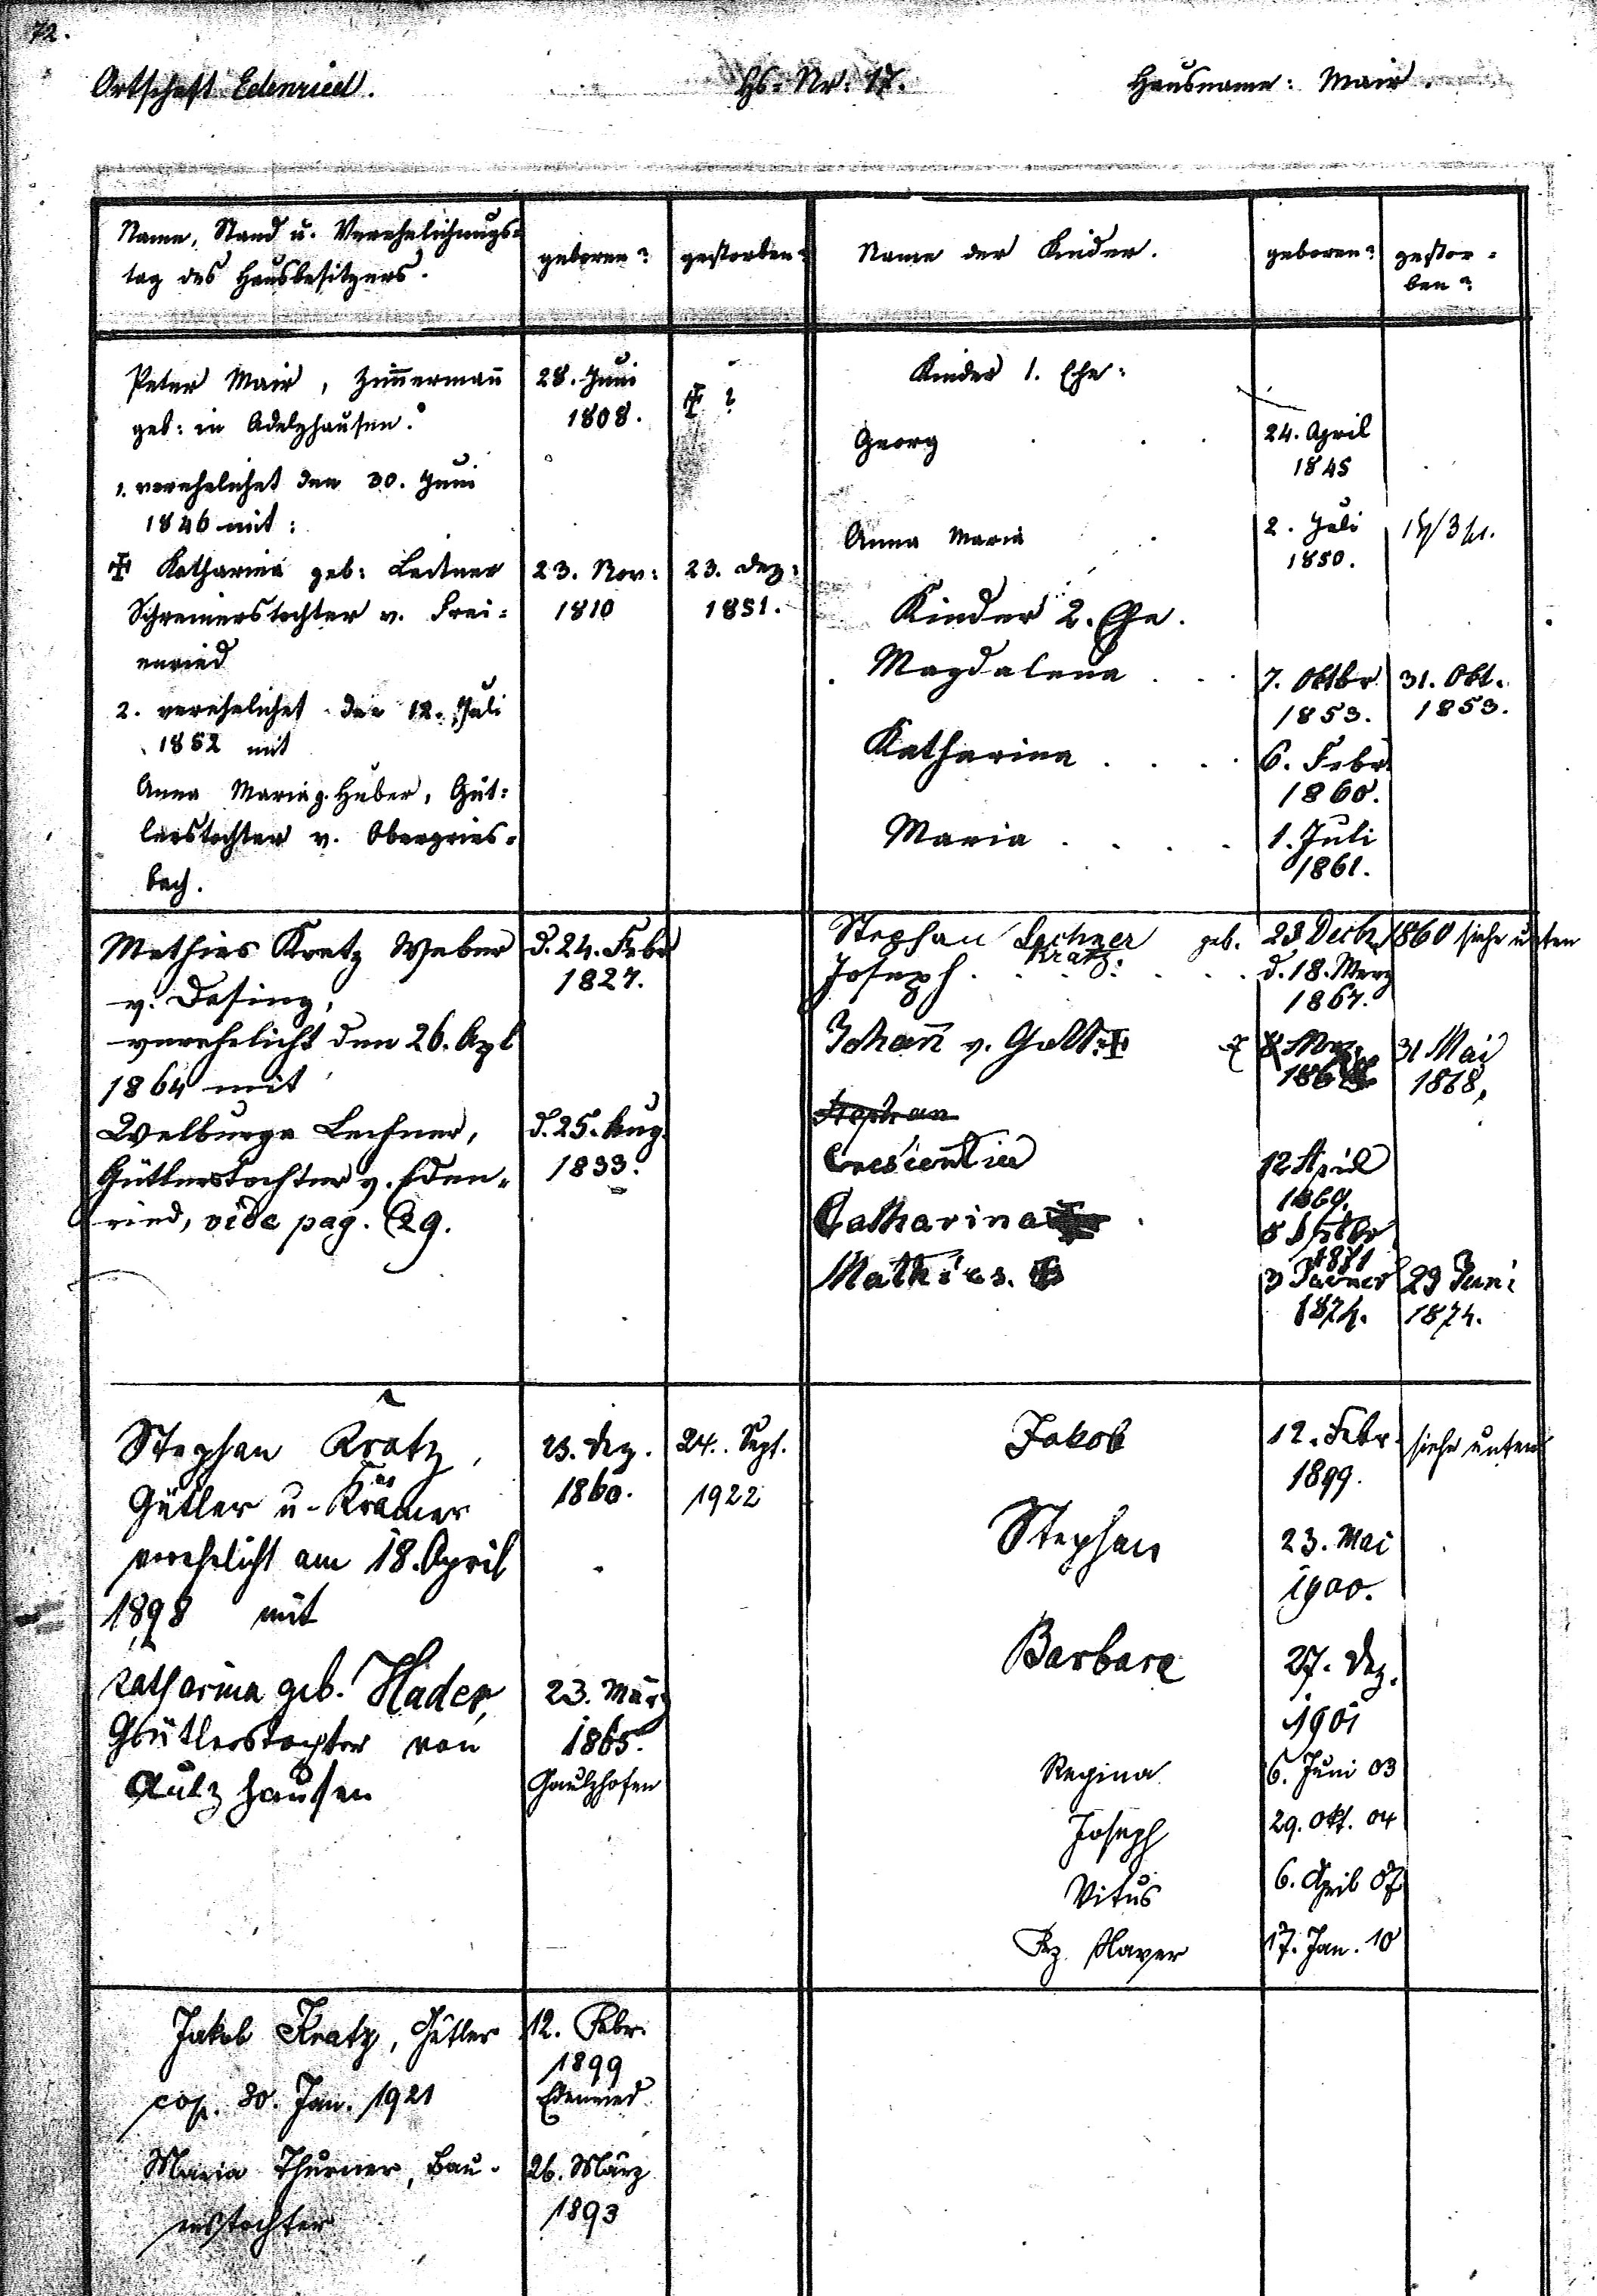 72.
Ortschaft Edenried.
Hs: Nr: 17.
Hausname: Mair.
Name, Stand u. Verehelichungs=
tag des Hausbesitzers.
geboren?
gestorben?
Name der Kinder.
geboren?
gestor=
ben?
Peter Mair, Zimmermañ
geb: in Adelzhausen.
28. Juni
1808.
✠ ?
1. verehelichet den 30. Juni
1846 mit:
✠ Katharina geb: Leitner
Schreinerstochter v. Frei=
enried
23. Nov:
1810
23. Dez:
1851.
2. verehelichet den 12. Juli
1852 mit
Anna Maria g. Huber, Güt=
lerstochter v. Obergries=
bach.
Kinder 1. Ehe:
Georg
24. April
1845
Anna Maria
2. Juli
1850.
Kinder 2. Ehe.
Magdalena
7. Oktbr.
1853.
31. Okt.
1853.
Katharina
6. Febr.
1860.
Maria
1. Juli
1861.
Mathias Kratz Weber
v. Dasing,
verehelicht den 26. Apl
1864 mit
d. 24. Febr
1827.
Walburga Lechner,
Gütlerstochter v. Eden=
ried, vide pag. 29.
d. 25. Aug.
1833.
Stephan Lechner geb. 23 Decbr. 1860 siehe unten
Kratz:
Joseph
d. 18. Merz
1867.
Johañ v. Gott ✠
31 Mai
1868,
Stephan
Crescentia
12 April
1869.
Catharina
1871
Mathias. ✠
3 Jaener
1874.
29 Juni
1874.
Stephan Kratz,
Gütler u. Krämer
verehelicht am 18. April
1898 mit
23. Dez.
1860.
24. Sept.
1922
Katharina geb. Hader,
Gütlerstochter von
Aulzhausen
23. März
1865.
Gaulzhofen
Jakob
12. Febr.
1899.
siehe unten
Stephan
23. Mai
1900.
Barbara
27. Dez.
1901
Regina
6. Juni 03
Joseph
29. Okt. 04
Vitus
6. April 07
Frz. Xaver
17. Jan. 10
Jakob Kratz, Gütler
cop. 30. Jan. 1921
12. Febr.
1899
Edenried
Maria Thurner, Bau=
erstochter
26. März
1893